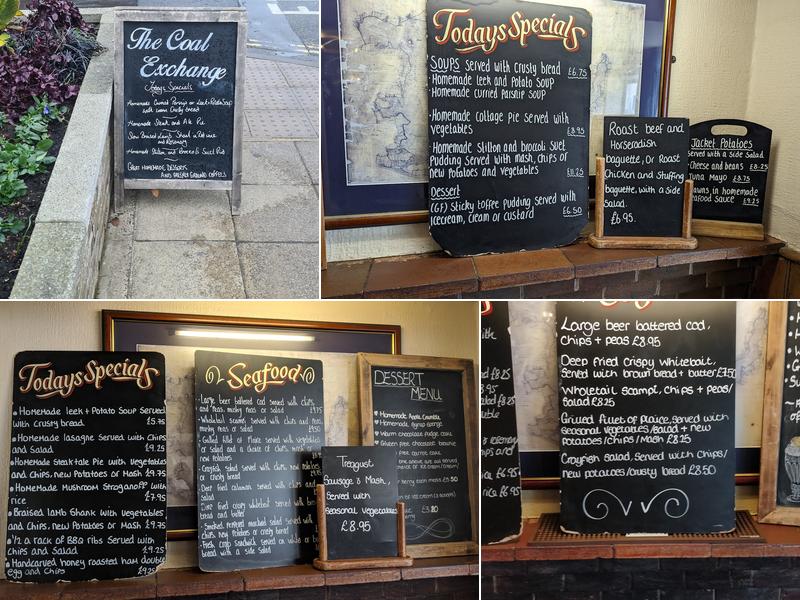 The Coal
Exchange
Todays Specials
Homemade Curried Parsnip or Leek + Potato Soup
with warm Crusty bread
Homemade Steak and Ale Pie
Slow Braised Lamb Shank in Red wine
and Rosemary
Homemade Stilton and Broccoli Suet Pud
Great Homemade Desserts
And Freshly Ground Coffees
Todays Specials
Soups served with Crusty bread £6.75
Homemade Leek and Potato Soup
Homemade Curried Parsnip Soup
Homemade cottage pie served with
vegetables £8.95
Homemade Stilton and broccoli Suet
pudding served with mash, chips or
new potatoes and vegetables
Dessert
(GF) Sticky toffee pudding served with
icecream, cream or custard £6.50
Roast beef and
Horseradish
baguette, Or Roast
Chicken and Stuffing
baguette, with a side
Salad.
£6.95.
Jacket Potatoes
Served with a side Salad
Cheese and beans £8.25
Tuna Mayo £8.75
in homemade
Seafood sauce £9.25
Todays Specials
Homemade leek + Potato Soup Served
with Crusty bread. £5.75
Homemade lasagne Served with Chips
and Salad £9.25
Homemade Steak + ale Pie with Vegetables
and Chips, new Potatoes or Mash £9.75
Homemade Mushroom Stroganoff with
rice £7.95
Braised lamb Shank with Vegetables
and Chips, new Potatoes or Mash £9.75
1/2 a rack of BBQ ribs Served with
Chips and Salad £9.25
Handcarved honey roasted ham double
egg and Chips £9.25
Seafood
Large beer battered cod served with chips
and peas, mushy peas or salad £9.75
Wholetail scampi served with chips and peas,
mushy peas or salad £9.50
Grilled fillet of Plaice served with vegetables
or salad and a choice of chips, mash or
new potatoes
Crayfish salad served with chips, new potatoes
or crusty bread
Deep fried calamari served with
salad and
Deep fried crispy whitebait served with
bread and butter
Smoked peppered mackerel salad served with
chips, new potatoes or crusty bread
Fresh crab sandwich served on white or
bread with a side salad
DESSERT
MENU
Homemade Apple Crumble
Homemade
Warm chocolate fudge cake
Gluten free chocolate brownie
carrot cake
Treagust
Sausage & Mash,
Served with
Seasonal Vegetables
£8.95
Large beer battered cod,
chips + peas £8.95
Deep fried crispy Whitebait,
served with brown bread + butter £7.50
Wholetail scampi, chips + peas/
Salad £8.25
Grilled fillet of plaice, served with
seasonal vegetables/salad + new
potatoes/chips/mash £8.25
Crayfish salad, served with chips/
new potatoes/crusty bread £8.50